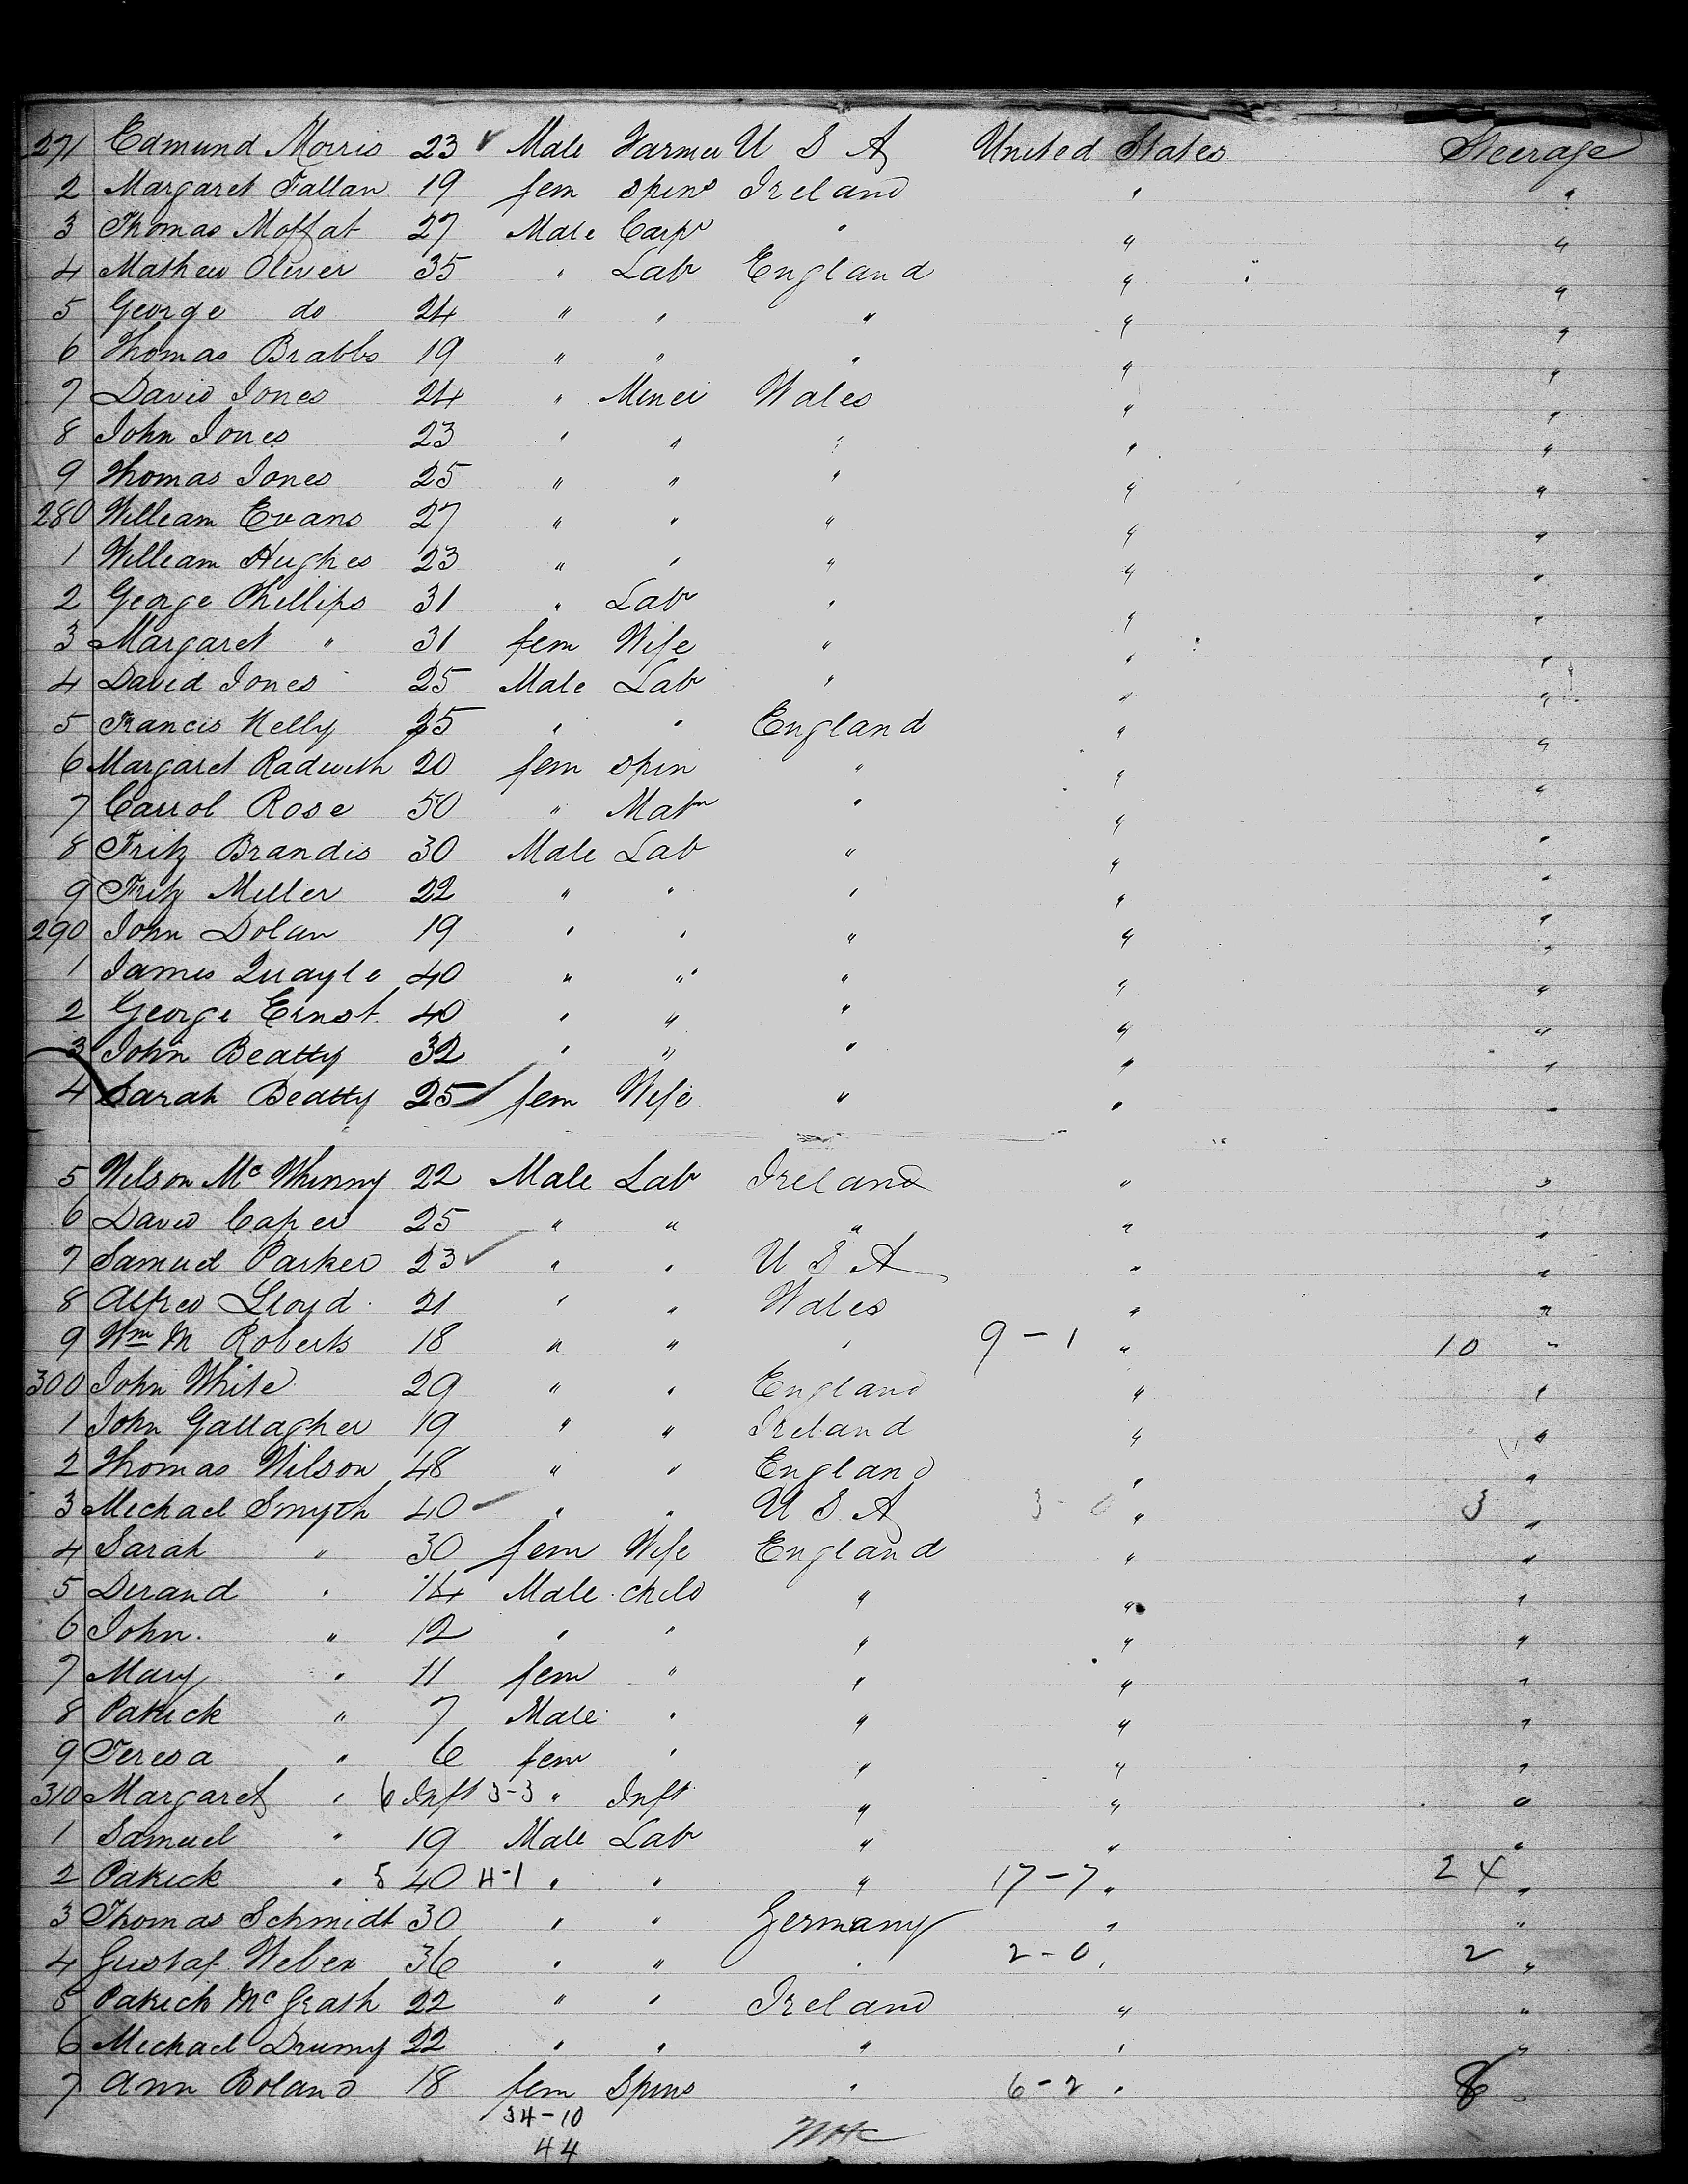 271 Edmund Morris 23 ✓ Male Farmer U S A United States Steerage
2 Margaret Fallan 19 fem spins Ireland " "
3 Thomas Moffat 27 Male Carpr " " "
4 Mathew Oliver 35 " Lab England " "
5 George do 24 " " " " "
6 Thomas Brabbs 19 " " " " "
7 David Jones 24 " Miner Wales " "
8 John Jones 23 " " " " "
9 Thomas Jones 25 " " " " "
280 William Evans 27 " " " " "
1 William Hughes 23 " " " " "
2 George Phillips 31 " Lab " " "
3 Margaret " 31 fem Wife " " "
4 David Jones 25 Male Lab " " "
5 Francis Kelly 25 " " England " "
6 Margaret Radwith 20 fem spin " " "
7 Carrol Rose 50 " Matn " " "
8 Fritz Brandis 30 Male Lab " " "
9 Fritz Miller 22 " " " " "
290 John Dolan 19 " " " " "
1 James Quayle 40 " " " " "
2 George Ernst 40 " " " " "
3 John Beatty 32 " " " " "
4 Sarah Beatty 25 ✓ fem Wife " " "
5 Wilson Mc Whinny 22 Male Lab Ireland " "
6 David Caper 25 " " " " "
7 Samuel Parker 23 ✓ " " U S A " "
8 Alfred Lloyd 21 " " Wales " "
9 Wm M Roberts 18 " " " 9-1 " 10 "
300 John White 29 " " England " "
1 John Gallagher 19 " " Ireland " "
2 Thomas Wilson 48 " " England " "
3 Michael Smyth 40 ✓ " " U S A 3-0 " 3 "
4 Sarah " 30 fem Wife England " "
5 Derand " 14 Male child " " "
6 John " 12 " " " " "
7 Mary " 11 fem " " " "
8 Patrick " 7 Male " " " "
9 Teresa " 6 fem " " " "
310 Margaret " 6 Inft 3-3 " Inft " " "
1 Samuel " 19 Male Lab " " "
2 Patrick " 5 40 4-1 " " " 17-7 " 24 "
3 Thomas Schmidt 30 " " Germany " "
4 Gustaf Weber 36 " " " 2-0 " 2 "
5 Patrick Mc Grath 22 " " Ireland " "
6 Michael Drumy 22 " " " " "
7 Ann Boland 18 fem Spins " 6-2 " 8 "
34-10
44